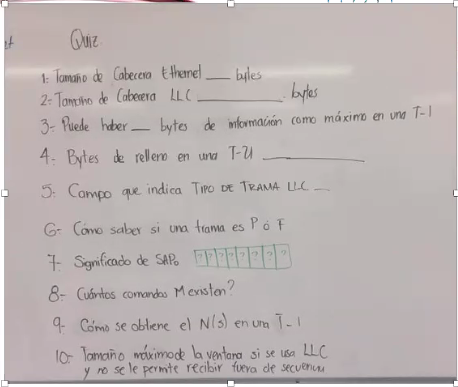 Quiz.
1.- Tamaño de Cabecera Ethernet ___ bytes
2.- Tamaño de Cabecera LLC ________ bytes
3.- Puede haber __ bytes de información como máximo en una T-I
4.- Bytes de relleno en una T-U ________
5.- Campo que indica TIPO DE TRAMA LLC __
6.- Cómo saber si una trama es P ó F
7.- Significado de SAPo ? ? ? ? ? ? ? ?
8.- Cuántos comandos M existen?
9.- Cómo se obtiene el N(s) en una T-I
10.- Tamaño máximo de la ventana si se usa LLC
y no se le permite recibir fuera de secuencia